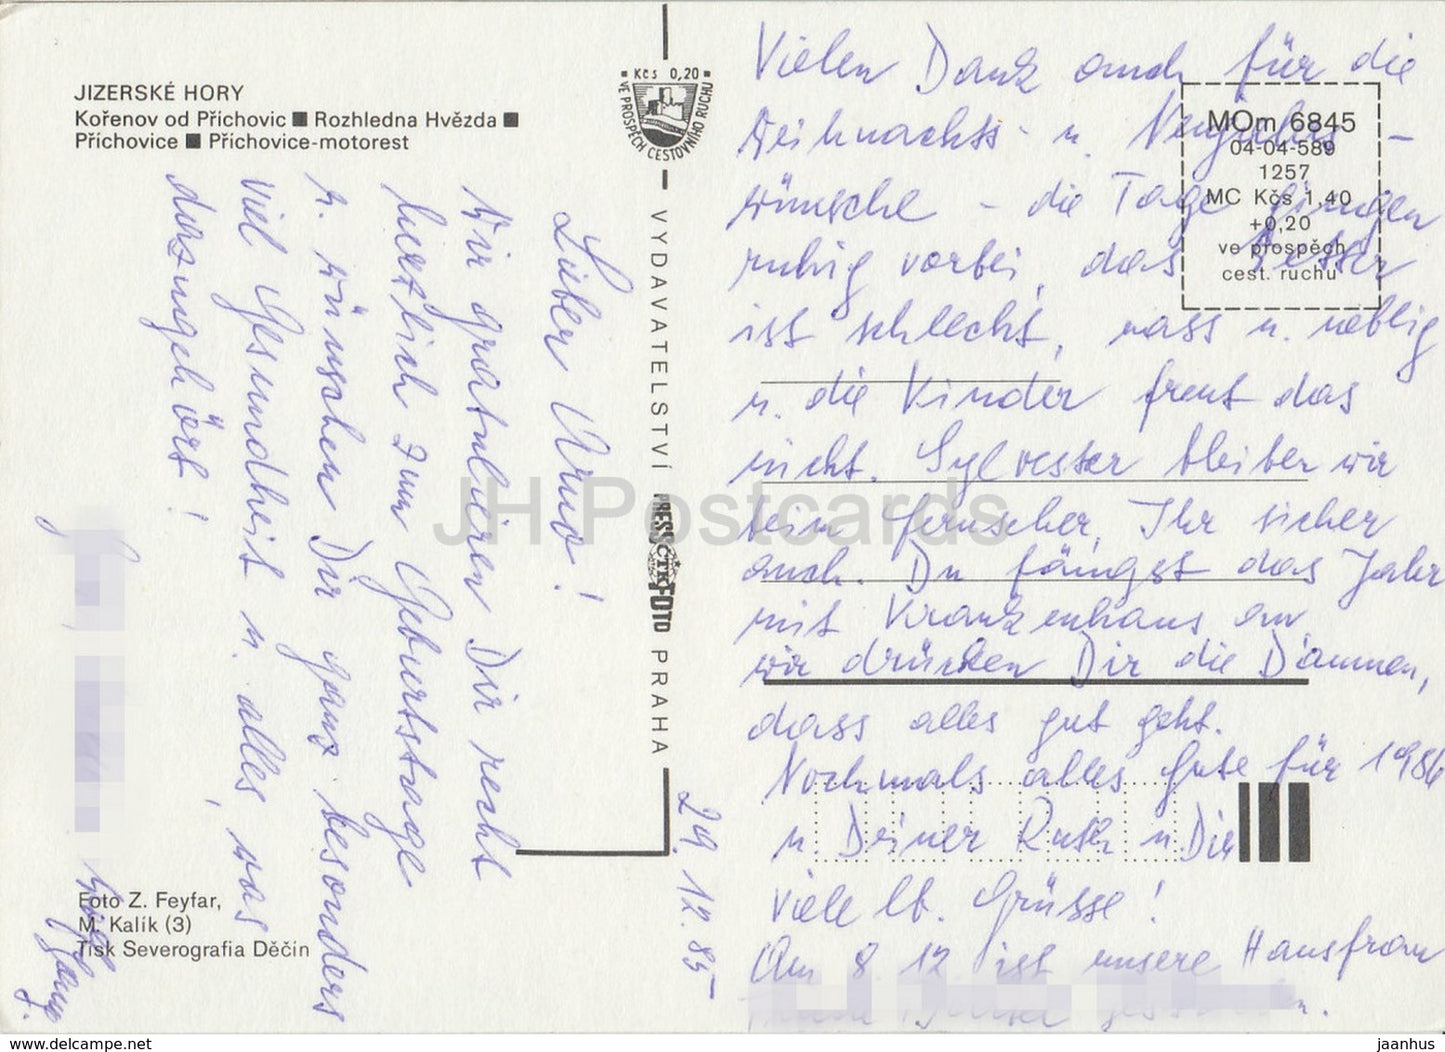 JIZERSKÉ HORY
Kořenov od Příchovic ■ Rozhledna Hvězda ■
Příchovice ■ Příchovice-motorest
Kčs 0,20
VE PROSPĚCH CESTOVNÍHO RUCHU
VYDAVATELSTVÍ PRESSFOTO PRAHA
ČTK
MOm 6845
04-04-589
1257
MC Kčs 1,40
+0,20
ve prospěch
cest. ruchu
Lieber Arno!
Wir gratulieren Dir recht
herzlich zum Geburtstage
u. wünschen Dir ganz besonders
viel Gesundheit u. alles, was
dazugehört!
29. 12. 85
Vielen Dank auch für die
Weihnachts- u. Neujahrs-
wünsche - die Tage gingen
ruhig vorbei, das Wetter
ist schlecht, nass u. neblig
u. die Kinder freut das
nicht. Sylvester bleiben wir
beim Fernseher, Ihr sicher
auch. Du fängst das Jahr
mit Krankenhaus an,
wir drücken Dir die Daumen,
dass alles gut geht.
Nochmals alles Gute für 1986
u. Deiner Ruth u Dir
viele lb. Grüsse!
Am 8. 12 ist unsere Hausfrau
Foto Z. Feyfar,
M. Kalík (3)
Tisk Severografia Děčín
JH Postcards
www.delcampe.net
jaanhus